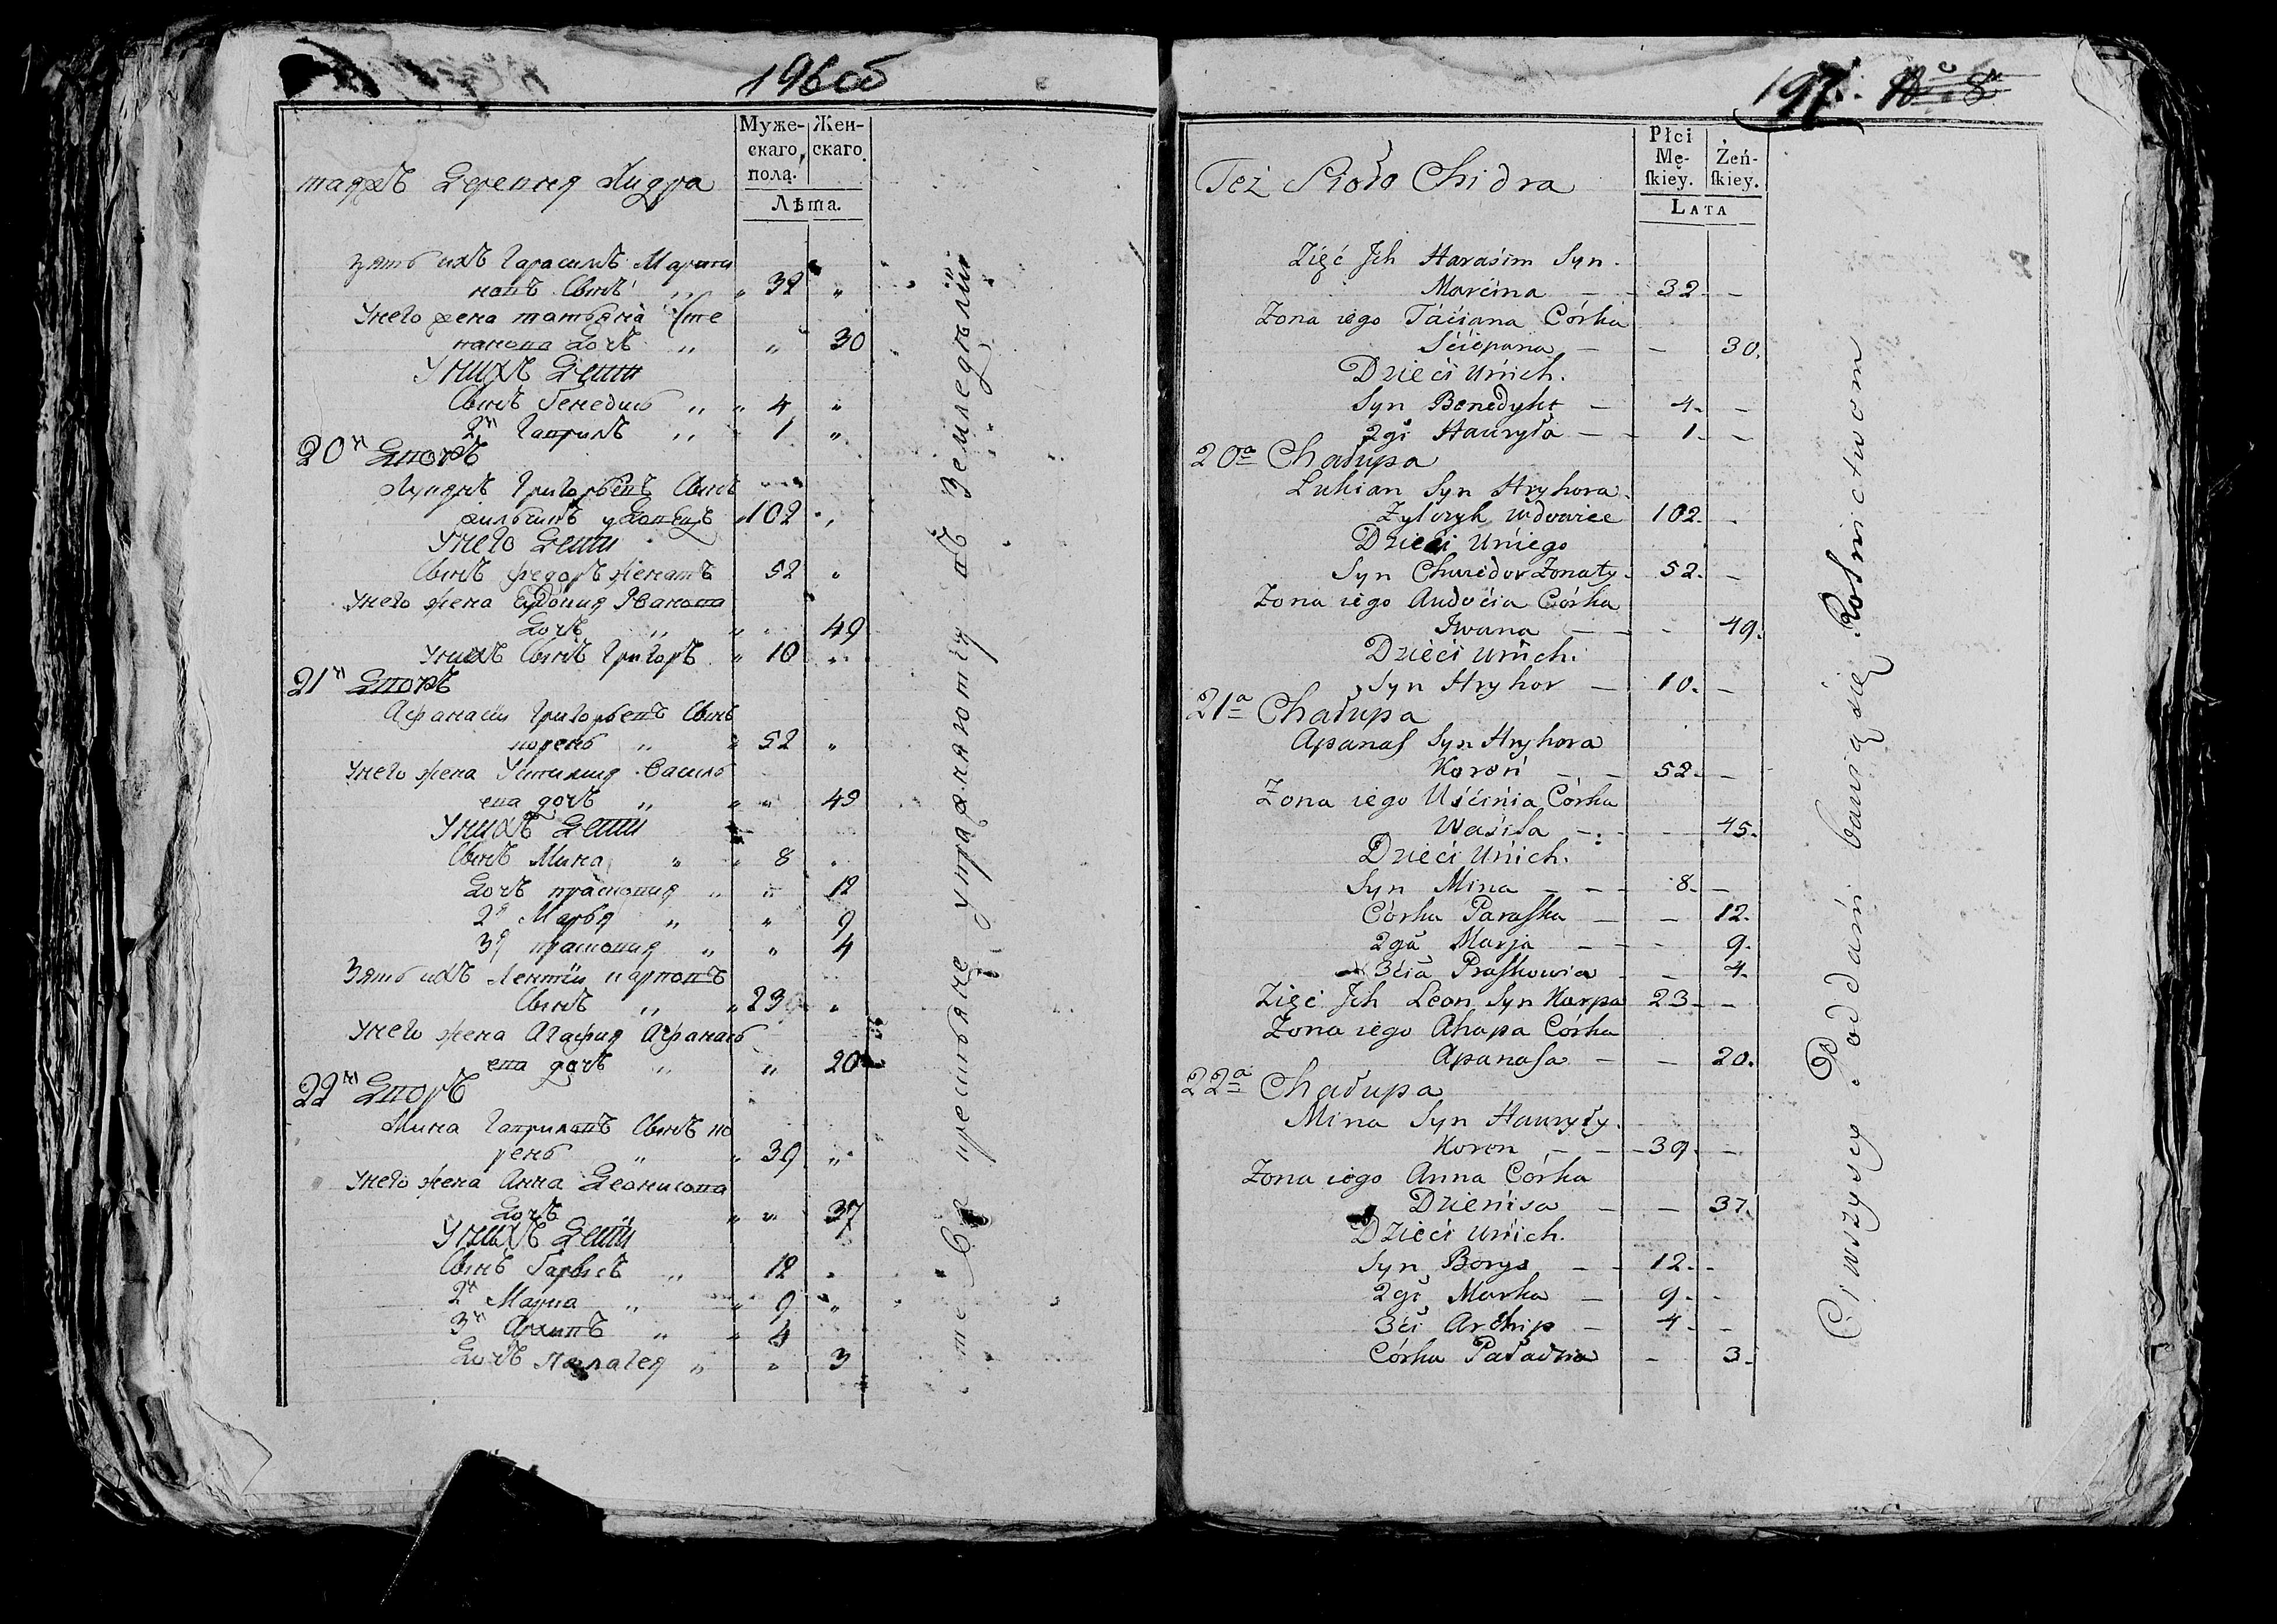 196об
Муже-
скаго
пола.
Жен-
скаго
Лѣта.
таяжъ Деревня Хидра
зять ихъ Гарасимъ Марти
новъ Сынъ " " 32 "
Унего жена татьяна Сте
панова Дочь " " 30
Унихъ Дети
Сынъ Бенедикт " " 4 "
2й Гаврилъ " " 1 "
20й Дворъ
Лукянъ Григорьевъ Сынъ
жильчикъ удовецъ " 102 "
Унего Дети
Сынъ Федоръ женатъ 52 "
Унего жена Евдокия Иванова
Дочь " " " 49
Унихъ Сынъ Григоръ " 10 "
21й Дворъ
Афанасiй Григорьевъ Сынъ
корень " " 52 "
Унего жена Устиния Василь
ева дочь " " " 45
Унихъ Дети
Сынъ Мина " " 8 "
Дочь прасковия " " 12
2я Марья " " 9
3я прасковия " " 4
Зять ихъ Лентiй карповъ
Сынъ " " 23 "
Унего жена Агафия Афанась
ева дочь " " 20
22й Дворъ
Мина Гавриловъ Сынъ ко
рень " " 39 "
Унего жена Анна Деонисова
Дочь " " " 37
Унихъ Дети
Сынъ Барысъ " 12 "
2й Марка " " 9 "
3й Архипъ " " 4
Дочь Палагея " " 3
те Ся крестьяне упражняютца въ Земледѣлiи
197.
Też Sioło Chidra
Płci
Mę-
skiey.
Żeń-
skiey.
LATA
Zięć Jch Harasim Syn
Marcina — 32 —
Zona iego Taciana Córka
Ściepana — — 30.
Dzieci Unich.
Syn Benedykt — 4. —
2gi Hauryła — 1. —
20a Chałupa
Lukian Syn Hryhora
Zylczyk wdowiec 102. —
Dzieci Uniego
Syn Chwiedor Zonaty. 52. —
Zona iego Audocia Córka
Jwana — — 49.
Dzieci Unich.
Syn Hryhor — 10. —
21a Chałupa
Apanas Syn Hryhora
Koroń — — 52. —
Zona iego Uścinia Córka
Wasila — — 45.
Dzieci Unich.
Syn Mina — — 8. —
Córka Paraska — — 12.
2ga Marja — — 9.
3cia Praskowia — — 4.
Zięć Jch Leon Syn Karpa 23. —
Zona iego Ahapa Córka
Apanasa — — 20.
22a Chałupa
Mina Syn Hauryły.
Koron — — 39. —
Zona iego Anna Córka
Dzienisa — — 37.
Dzieci Unich.
Syn Borys — 12. —
2gi Marka — 9. —
3ci Archip — 4. —
Córka Paładzia — 3.
Ci wszyscy Poddani bawią się Rolnictwom